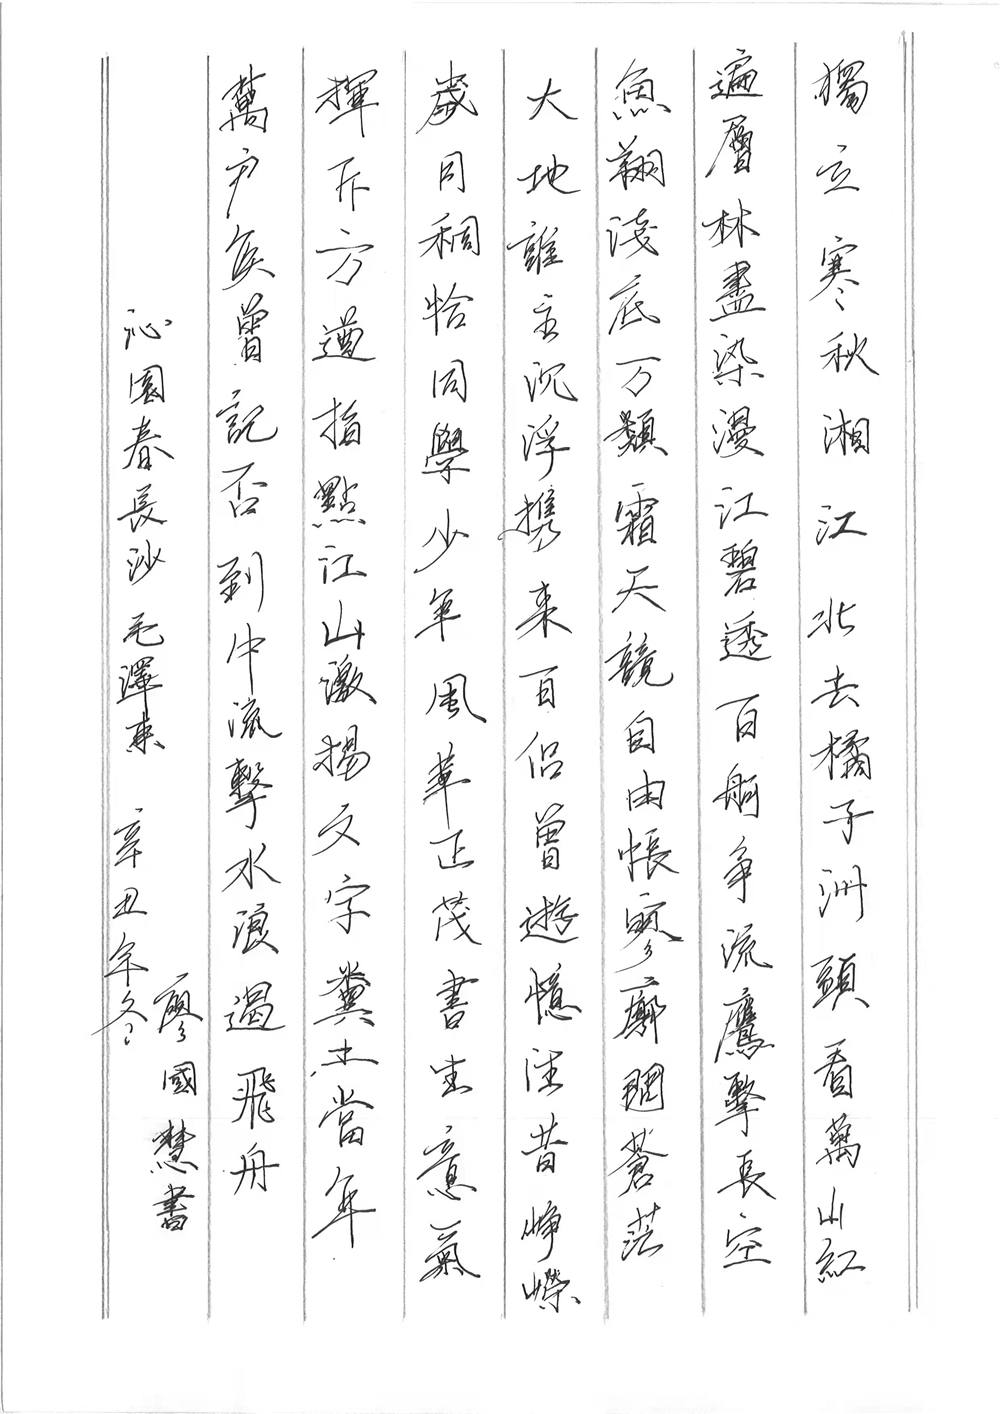 獨立寒秋湘江北去橘子洲頭看萬山紅
遍層林盡染漫江碧透百舸争流鷹擊長空
魚翔淺底万類霜天競自由悵寥廓問蒼茫
大地誰主沉浮携來百侣曾遊憶往昔崢嶸
歲月稠恰同學少年風華正茂書生意氣
揮斥方遒指點江山激揚文字糞土當年
萬户侯曾記否到中流擊水浪遏飛舟
沁園春長沙毛澤東 辛丑年冬
廖國慧書